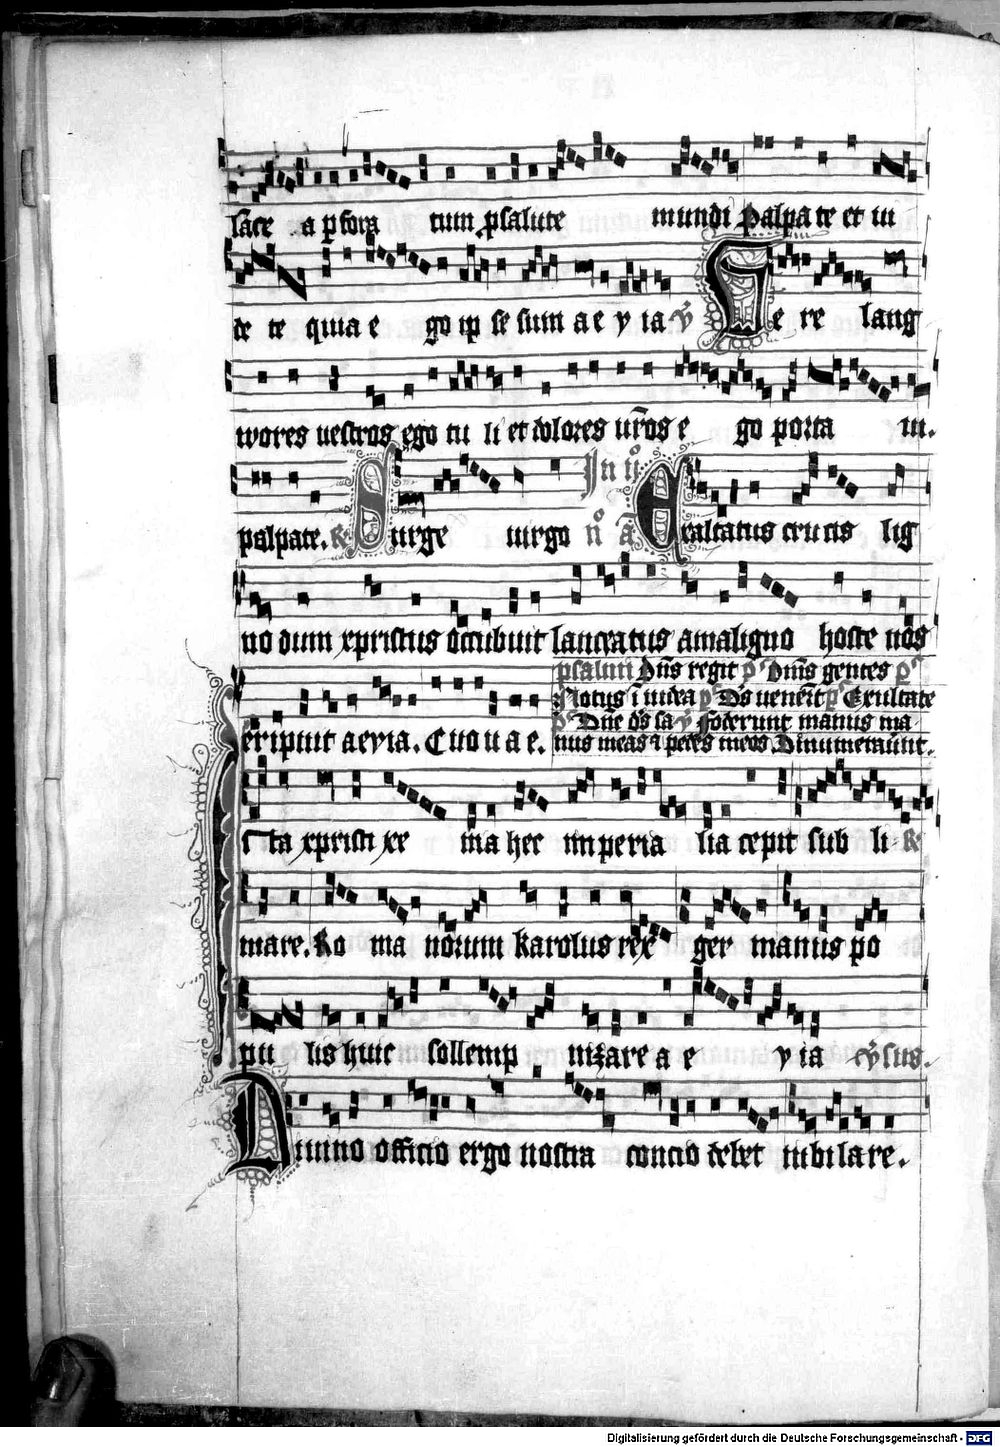 lace a pfora tum psalute mundi palpate et ui
de te quia e go ip se sum a e y ia ỹ Ve re lang
wores uestros ego tu li et dolores uros e go porta ui.
palpate. Surge uirgo Jn n° n° ā Exaltatus crucis lig
no dum xpristus occubuit lanceatus amaligno hoste nos
psalmi Dns regit p̄s Dms gentes p̄s
Notus ī iudea p̄s Ds uenert p̄s Exultate
p̄s Dne ds sa ỹ Foderunt manus ma
eripuit aevia. Euouae. nus meas ⁊ pedes meos Dinumeraūnt.
Jsta xpristi xe ma hec im peria lia cepit sub li
mare. Ro ma norum karolus rex ger manus po
pu lis huic sollemp nizare a e y ia ỹsus.
Diuino officio ergo nostra concio debet iubilare.
Digitalisierung gefördert durch die Deutsche Forschungsgemeinschaft - DFG